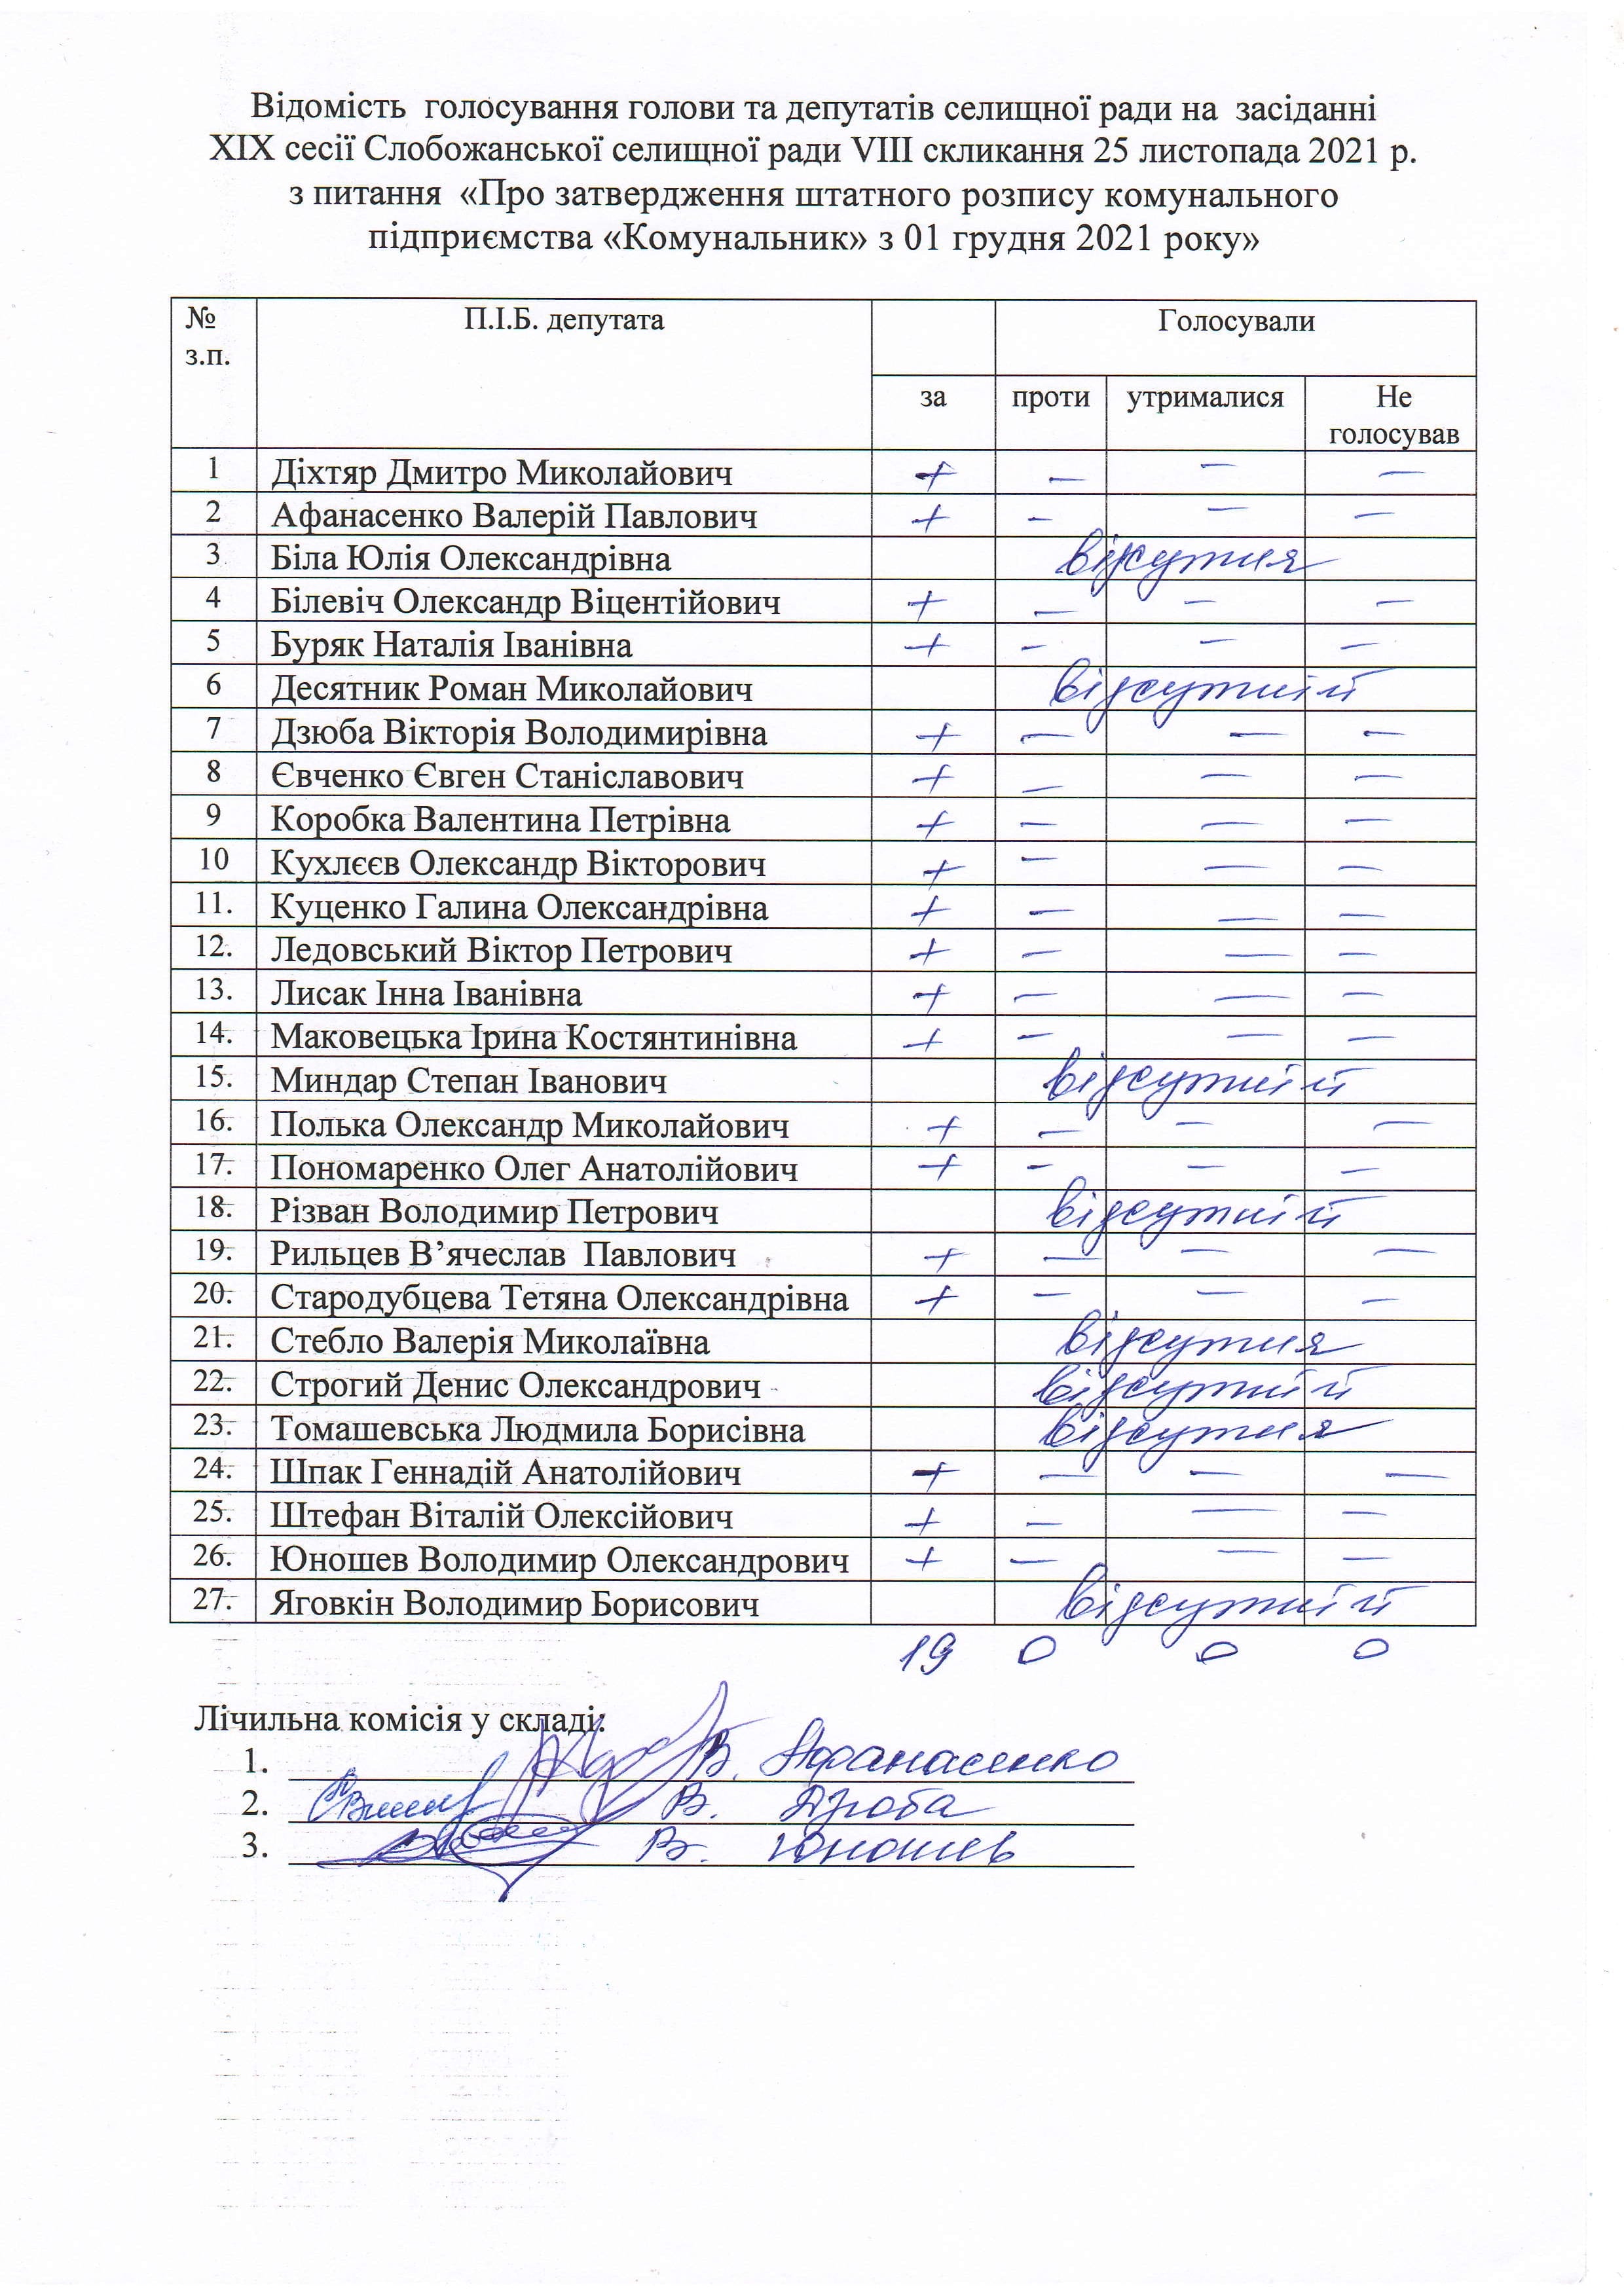 Відомість голосування голови та депутатів селищної ради на засіданні
XIX сесії Слобожанської селищної ради VIII скликання 25 листопада 2021 р.
з питання «Про затвердження штатного розпису комунального
підприємства «Комунальник» з 01 грудня 2021 року»
№ з.п. П.І.Б. депутата Голосували
за проти утрималися Не голосував
1 Діхтяр Дмитро Миколайович + — — —
2 Афанасенко Валерій Павлович + — — —
3 Біла Юлія Олександрівна відсутня
4 Білевіч Олександр Віцентійович + — — —
5 Буряк Наталія Іванівна + — — —
6 Десятник Роман Миколайович відсутній
7 Дзюба Вікторія Володимирівна + — — —
8 Євченко Євген Станіславович + — — —
9 Коробка Валентина Петрівна + — — —
10 Кухлєєв Олександр Вікторович + — — —
11. Куценко Галина Олександрівна + — — —
12. Ледовський Віктор Петрович + — — —
13. Лисак Інна Іванівна + — — —
14. Маковецька Ірина Костянтинівна + — — —
15. Миндар Степан Іванович відсутній
16. Полька Олександр Миколайович + — — —
17. Пономаренко Олег Анатолійович + — — —
18. Різван Володимир Петрович відсутній
19. Рильцев В’ячеслав Павлович + — — —
20. Стародубцева Тетяна Олександрівна + — — —
21. Стебло Валерія Миколаївна відсутня
22. Строгий Денис Олександрович відсутній
23. Томашевська Людмила Борисівна відсутня
24. Шпак Геннадій Анатолійович + — — —
25. Штефан Віталій Олексійович + — — —
26. Юношев Володимир Олександрович + — — —
27. Яговкін Володимир Борисович відсутній
19 0 0 0
Лічильна комісія у складі:
1. В. Афанасенко
2. В. Дзюба
3. В. Юношев